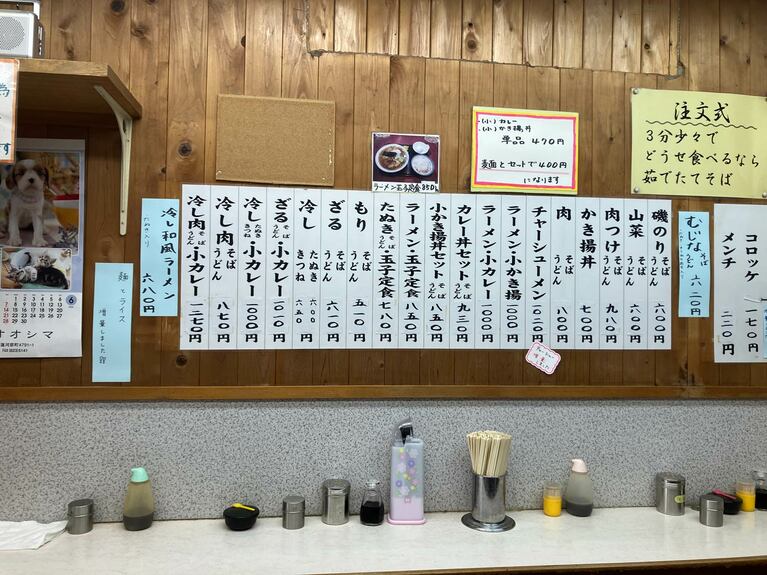 注文式
3分少々で
どうせ食べるなら
茹でたてそば
・(小)カレー
・(小)かき揚丼
単品 470円
麦面とセットで400円
になります
ラーメン玉子定食 850円
コロッケ 一七〇円
メンチ 二二〇円
むじな そば うどん 六二〇
磯のり そば うどん 六〇〇
山菜 そば うどん 六〇〇
肉つけ そば うどん 九八〇
かき揚丼 七〇〇
肉 そば うどん 八〇〇
チャーシューメン 一〇二〇
ラーメン・小かき揚 一〇〇〇
ラーメン・小カレー 一〇〇〇
カレー丼セット そば うどん 九三〇
小かき揚丼セット そば うどん 八五〇
ラーメン・玉子定食 八五〇
たぬき そば うどん ・玉子定食 七八〇
もり そば うどん 五一〇
ざる そば うどん 六一〇
冷し たぬき 六〇〇 きつね 六五〇
ざる そば うどん ・小カレー 一〇一〇
冷し たぬき きつね ・小カレー 一〇〇〇
冷し肉 そば うどん 八七〇
冷し肉 そば うどん ・小カレー 一二七〇
冷し和風ラーメン 六八〇円
たぬき入り
麺とライス
増量しました
増量
6
オオシマ